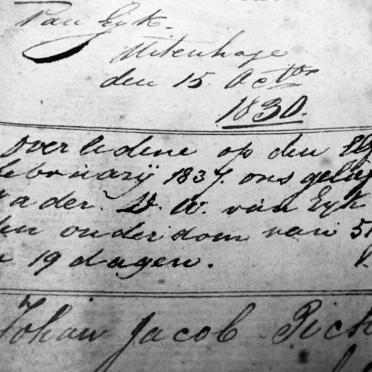 van Eyk.
Uitenhage
den 15 Octbr
1830.
Overledene op den
Februarij 1837. ons
Vader. D. W. van Eyk
den ouderdom van 5
19 dagen.
Johan Jacob